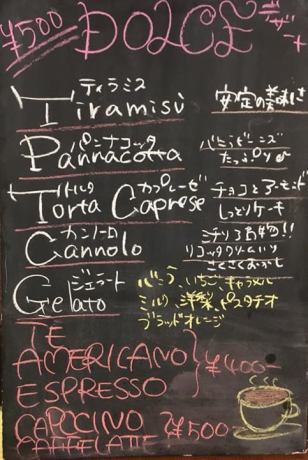 ¥500 DOLCE デザート
ティラミス
Tiramisù 安定の美味しさ
パンナコッタ
Pannacotta バニラビーンズたっぷり
トルタ カプレーゼ
Torta Caprese チョコとアーモンド
しっとりケーキ
カンノーロ シチリア名物!!
Cannolo リコッタクリーム入り
さくさくおかし
ジェラート
Gelato バニラ、いちご、キャラメル
ミルク、洋梨、ピスタチオ
ブラッドオレンジ
TE
AMERICANO ¥400-
ESPRESSO
CAPPCINO ¥500-
CAFFELATTE